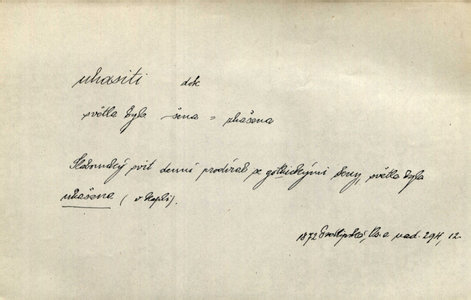 uhasiti dok
světla byla šena = uhašena
svit denní prodíral se gothickými okny, světla byla
uhašena (v kapli).
1872 Světlá, Kř. a nad. 294, 12.